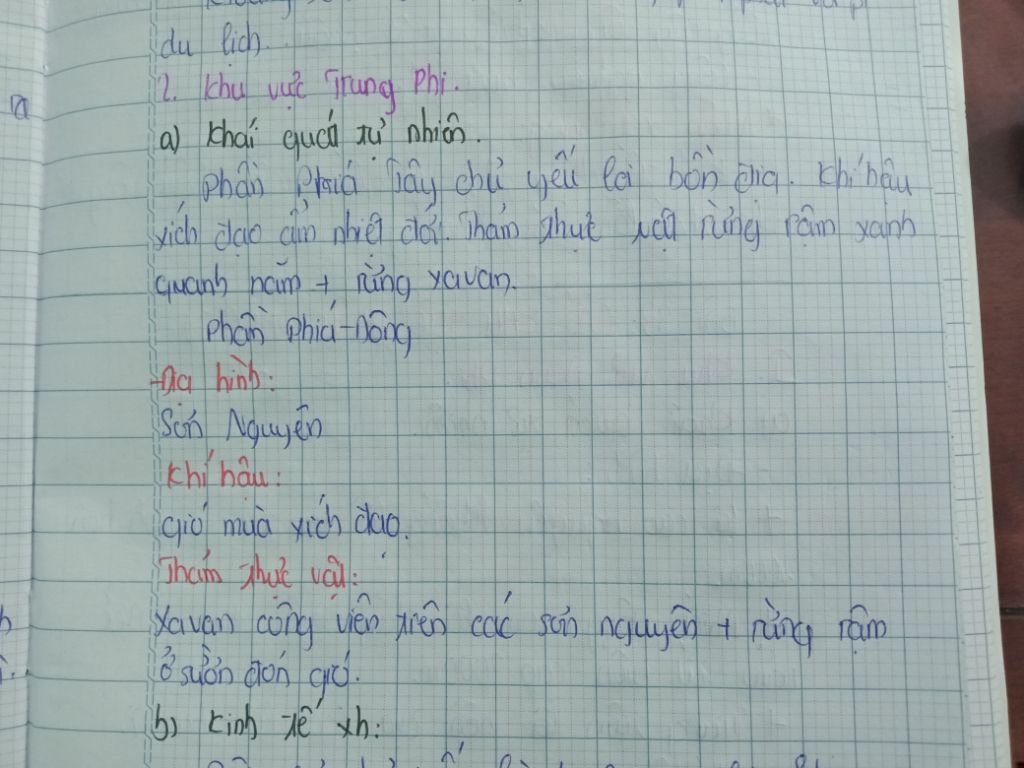 du lịch.
2. Khu vực Trung Phi.
a) Khái quát tự nhiên.
Phần phía Tây chủ yếu là bồn địa. Khí hậu
xích đạo ẩm nhiệt đới. Thảm thực vật rừng rậm xanh
quanh năm + rừng xavan.
Phần phía Đông
-Địa hình:
Sơn Nguyên
Khí hậu:
gió mùa xích đạo.
Thảm thực vật:
xavan công viên trên các sơn nguyên + rừng rậm
ở sườn đón gió.
b) Kinh tế xh: